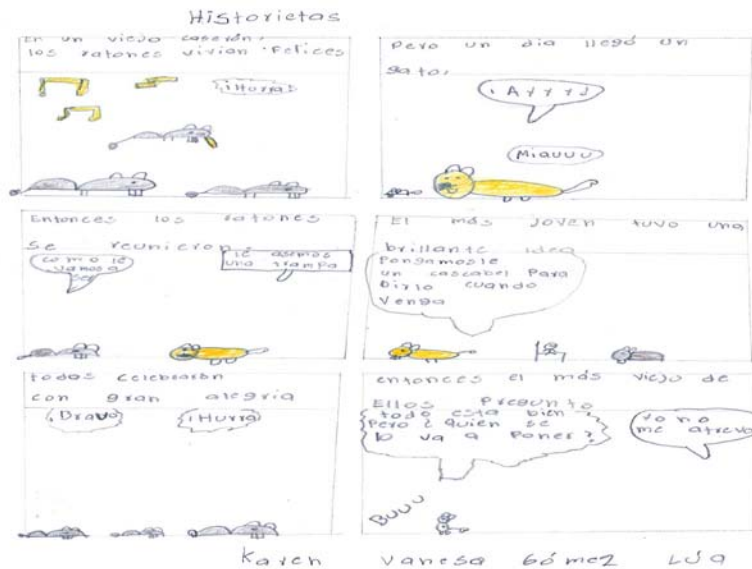 Historietas
En un viejo caserón,
los ratones vivian felices
¡Hurra!
Pero un dia llegó un
gato,
¡AYYYJ
Miauuu
Entonces los ratones
se reunieron:
como le
vamos a
le asemos
una trampa
El más joven tuvo una
brillante idea
Pongamosle
un cascabel Para
oirlo cuando
Venga
todos celebrarón
con gran alegria
¡Bravo!
¡Hurra
entonces el más viejo de
Ellos Pregunto
todo esta bien,
Pero ¿ quien se
lo va a Poner?
Yo no
me atrevo
Buuu
Karen Vanesa Gómez